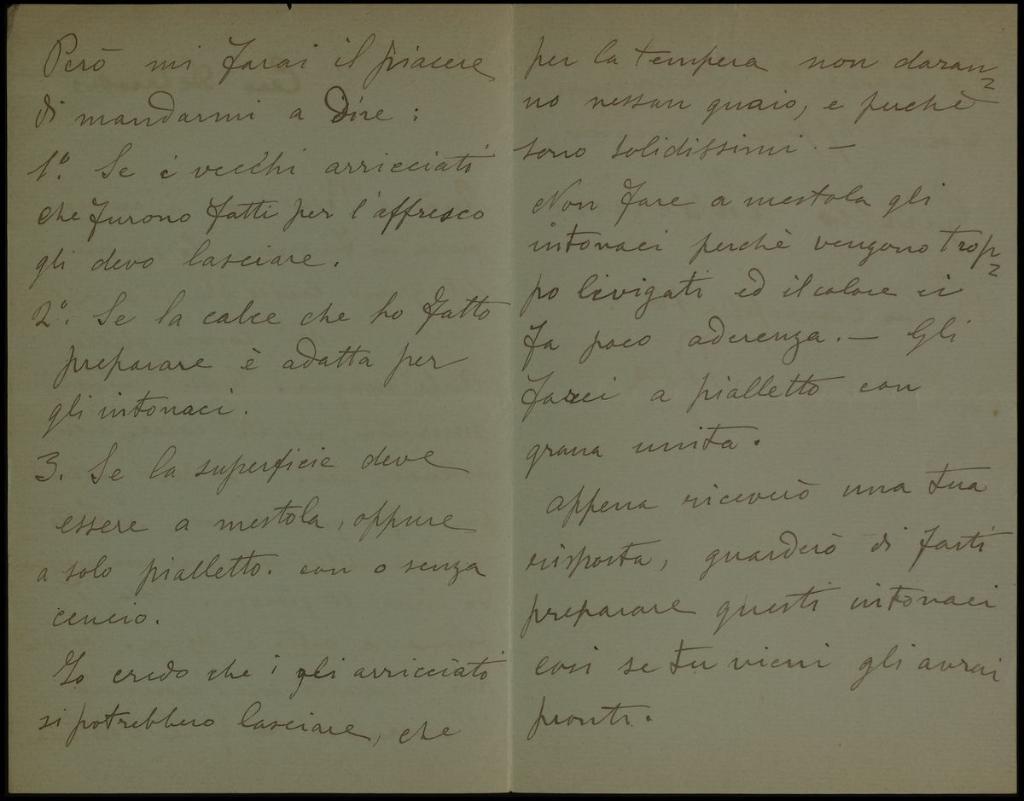 Però mi farai il piacere
di mandarmi a dire:
1º. Se i vecchi arricciati
che furono fatti per l'affresco
gli devo lasciare.
2º. Se la calce che ho fatto
preparare è adatta per
gli intonaci.
3. Se la superficie deve
essere a mestola, oppure
a solo pialletto. con o senza
cencio.
Io credo che i gli arricciati
si potrebbero lasciare, che
per la tempera non daran=
no nessun guaio, e perchè
sono solidissimi. —
Non fare a mestola gli
intonaci perchè vengono trop=
po livigati ed il colore ci
fa poco aderenza. — Gli
farei a pialletto con
grana unita.
Appena riceverò una tua
risposta, guarderò di farti
preparare questi intonaci
così se tu vieni gli avrai
pronti.